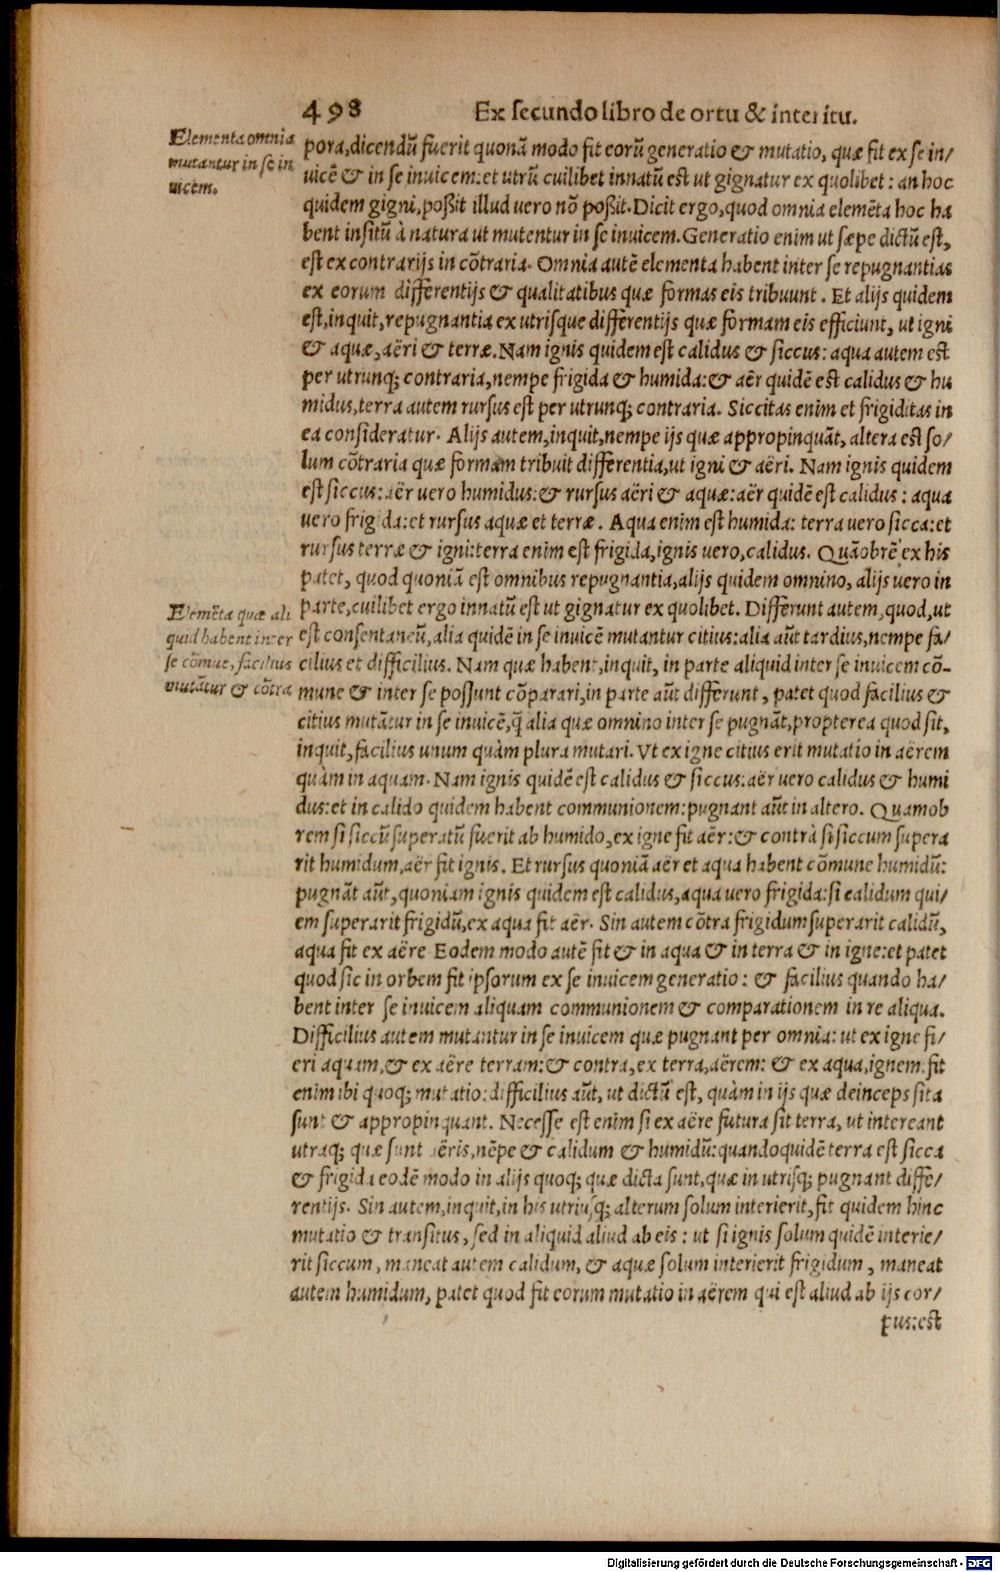 498 Ex secundo libro de ortu & interitu.
Elementa omnia
mutantur in se in
uicem.
pora,dicendũ fuerit quonã modo fit eorũ generatio & mutatio, quæ fit ex se in/
uicẽ & in se inuicem:et utrũ cuilibet innatũ est ut gignatur ex quolibet : an hoc
quidem gigni,poßit illud vero nõ poßit.Dicit ergo,quod omnia elemẽta hoc ha
bent insitũ à natura ut mutentur in se inuicem.Generatio enim ut sæpe dictũ est,
est ex contrarijs in cõtraria. Omnia autẽ elementa habent inter se repugnantias
ex eorum differentijs & qualitatibus quæ formas eis tribuunt . Et alijs quidem
est,inquit,repugnantia ex utrisque differentijs quæ formam eis efficiunt, ut igni
& aquæ,aëri & terræ.Nam ignis quidem est calidus & siccus: aqua autem est
per utrunq; contraria,nempe frigida & humida:& aër quidẽ est calidus & hu
midus,terra autem rursus est per utrunq; contraria. Siccitas enim et frigiditas in
ea consideratur. Alijs autem,inquit,nempe ijs quæ appropinquãt, altera est so/
lum cõtraria quæ formam tribuit differentia,ut igni & aëri. Nam ignis quidem
est siccus:aër vero humidus:& rursus aëri & aquæ:aër quidẽ est calidus : aqua
vero frigida:et rursus aquæ et terræ . Aqua enim est humida: terra vero sicca:et
rursus terræ & igni:terra enim est frigida,ignis vero,calidus. Quãobrẽ ex his
patet, quod quoniã est omnibus repugnantia,alijs quidem omnino, alijs vero in
parte,cuilibet ergo innatũ est ut gignatur ex quolibet. Differunt autem,quod,ut
est consentaneũ,alia quidẽ in se inuicẽ mutantur citius:alia aũt tardius,nempe fa/
cilius et difficilius. Nam quæ habent,inquit, in parte aliquid inter se inuicem cõ-
mune & inter se possunt cõparari,in parte aũt differunt, patet quod facilius &
citius mutãtur in se inuicẽ,q̃ alia quæ omnino inter se pugnãt,propterea quod sit,
inquit,facilius unum quàm plura mutari. Vt ex igne citius erit mutatio in aërem
quàm in aquam. Nam ignis quidẽ est calidus & siccus:aër vero calidus & humi
dus:et in calido quidem habent communionem:pugnant aũt in altero. Quamob
rem si siccũ superatũ fuerit ab humido,ex igne fit aër:& contrà si siccum supera
rit humidum,aër fit ignis. Et rursus quoniã aër et aqua habent cõmune humidũ:
pugnãt aũt,quoniam ignis quidem est calidus,aqua vero frigida:si calidum qui/
em superarit frigidũ,ex aqua fit aër. Sin autem cõtra frigidum superarit calidũ,
aqua fit ex aëre Eodem modo autẽ fit & in aqua & in terra & in igne:et patet
quod sic in orbem fit ipsorum ex se inuicem generatio : & facilius quando ha/
bent inter se inuicem aliquam communionem & comparationem in re aliqua.
Difficilius autem mutantur in se inuicem quæ pugnant per omnia: ut ex igne fi/
eri aquam,& ex aëre terram:& contra,ex terra,aërem: & ex aqua,ignem:fit
enim ibi quoq; mutatio:difficilius aũt, ut dictũ est, quàm in ijs quæ deinceps sita
sunt & appropinquant. Necesse est enim si ex aëre futura sit terra, ut intereant
utraq; quæ sunt aëris,nẽpe & calidum & humidũ:quandoquidẽ terra est sicca
& frigida eodẽ modo in alijs quoq; quæ dicta sunt,quæ in utrisq; pugnant diffe/
rentijs. Sin autem,inquit,in his utriusq; alterum solum interierit,fit quidem hinc
mutatio & transitus, sed in aliquid aliud ab eis : ut si ignis solum quidẽ interie/
rit siccum, maneat autem calidum, & aquæ solum interierit frigidum , maneat
autem humidum, patet quod fit eorum mutatio in aërem qui est aliud ab ijs cor/
pus:est
Elemẽta quæ ali
quid habent inter
se cõmue, facilius
mutãtur & cõtra
Digitalisierung gefördert durch die Deutsche Forschungsgemeinschaft - DFG